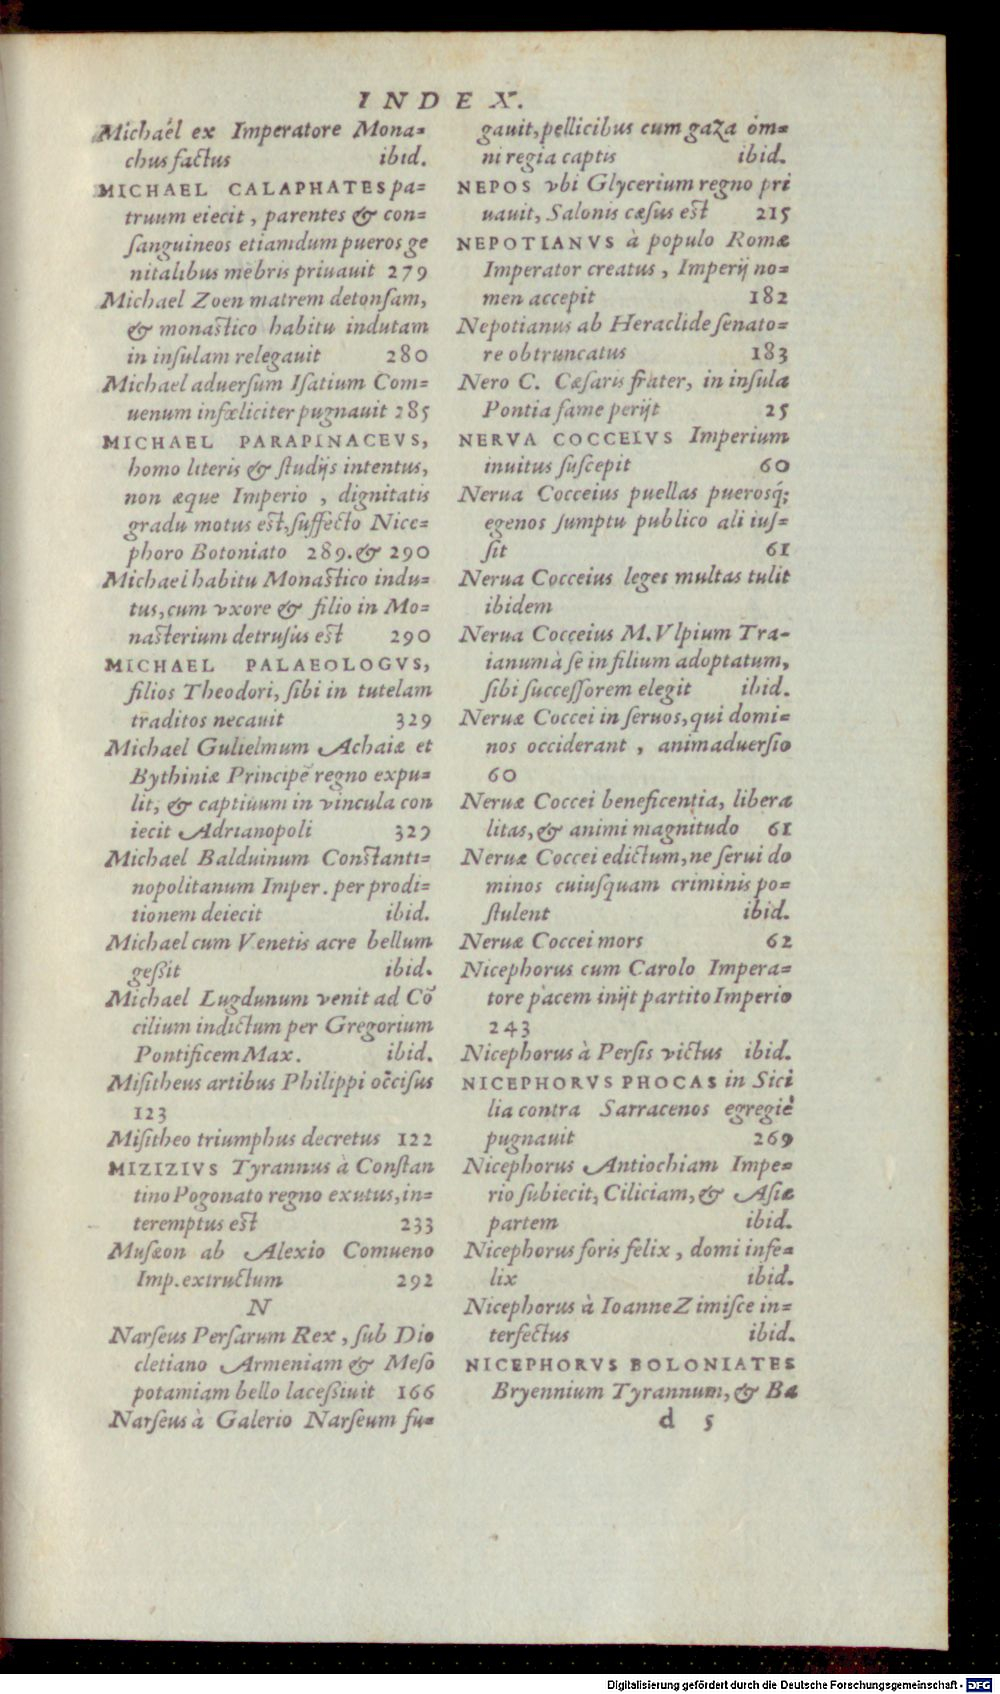 INDEX.
Michaél ex Imperatore Mona=
chus factus ibid.
MICHAEL CALAPHATES pa=
truum eiecit, parentes & con=
ſanguineos etiamdum pueros ge
nitalibus mēbris priuauit 279
Michael Zoen matrem detonſam,
& monaſtico habitu indutam
in inſulam relegauit 280
Michael aduerſum Iſatium Com=
uenum infæliciter pugnauit 285
MICHAEL PARAPINACEVS,
homo literis & ſtudijs intentus,
non æque Imperio, dignitatis
gradu motus eſt, ſuffecto Nice=
phoro Botoniato 289. & 290
Michael habitu Monaſtico indu=
tus, cum vxore & filio in Mo=
naſterium detruſus eſt 290
MICHAEL PALAEOLOGVS,
filios Theodori, ſibi in tutelam
traditos necauit 329
Michael Gulielmum Achaiæ et
Bythiniæ Principē regno expu=
lit, & captiuum in vincula con
iecit Adrianopoli 329
Michael Balduinum Conſtanti=
nopolitanum Imper. per prodi=
tionem deiecit ibid.
Michael cum Venetis acre bellum
geßit ibid.
Michael Lugdunum venit ad Cō
cilium indictum per Gregorium
Pontificem Max. ibid.
Miſitheus artibus Philippi occiſus
123
Miſitheo triumphus decretus 122
MIZIZIVS Tyrannus à Conſtan
tino Pogonato regno exutus, in=
teremptus eſt 233
Muſæon ab Alexio Comueno
Imp. extructum 292
N
Narſeus Perſarum Rex, ſub Dio
cletiano Armeniam & Meſo
potamiam bello laceßiuit 166
Narſeus à Galerio Narſeum fu=
gauit, pellicibus cum gaza om=
ni regia captis ibid.
NEPOS vbi Glycerium regno pri
uauit, Salonis cæſus eſt 215
NEPOTIANVS à populo Romæ
Imperator creatus, Imperij no=
men accepit 182
Nepotianus ab Heraclide ſenato=
re obtruncatus 183
Nero C. Cæſaris frater, in inſula
Pontia fame perijt 25
NERVA COCCEIVS Imperium
inuitus ſuſcepit 60
Nerua Cocceius puellas pueroſq́;
egenos ſumptu publico ali iuſ=
ſit 61
Nerua Cocceius leges multas tulit
ibidem
Nerua Cocceius M. Vlpium Tra-
ianum à ſe in filium adoptatum,
ſibi ſucceſſorem elegit ibid.
Neruæ Coccei in ſeruos, qui domi=
nos occiderant, animaduerſio
60
Neruæ Coccei beneficentia, libera
litas, & animi magnitudo 61
Neruæ Coccei edictum, ne ſerui do
minos cuiuſquam criminis po=
ſtulent ibid.
Neruæ Coccei mors 62
Nicephorus cum Carolo Impera=
tore pacem inijt partito Imperio
243
Nicephorus à Perſis victus ibid.
NICEPHORVS PHOCAS in Sici
lia contra Sarracenos egregiè
pugnauit 269
Nicephorus Antiochiam Impe=
rio ſubiecit, Ciliciam, & Aſiæ
partem ibid.
Nicephorus foris felix, domi infe=
lix ibid.
Nicephorus à Ioanne Zimiſce in=
terfectus ibid.
NICEPHORVS BOLONIATES
Bryennium Tyrannum, & Ba
d 5
Digitalisierung gefördert durch die Deutsche Forschungsgemeinschaft - DFG